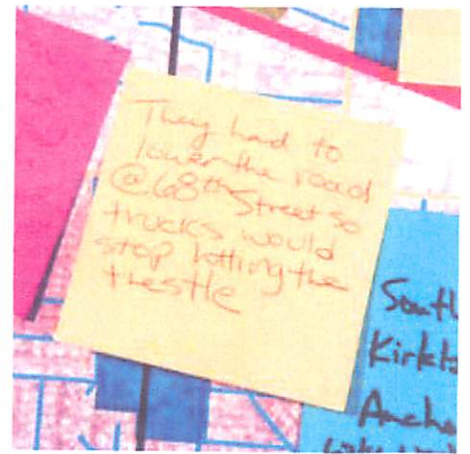 They had to
lower the road
@68th Street so
trucks would
stop hitting the
trestle
South
Kirkla
Ancho